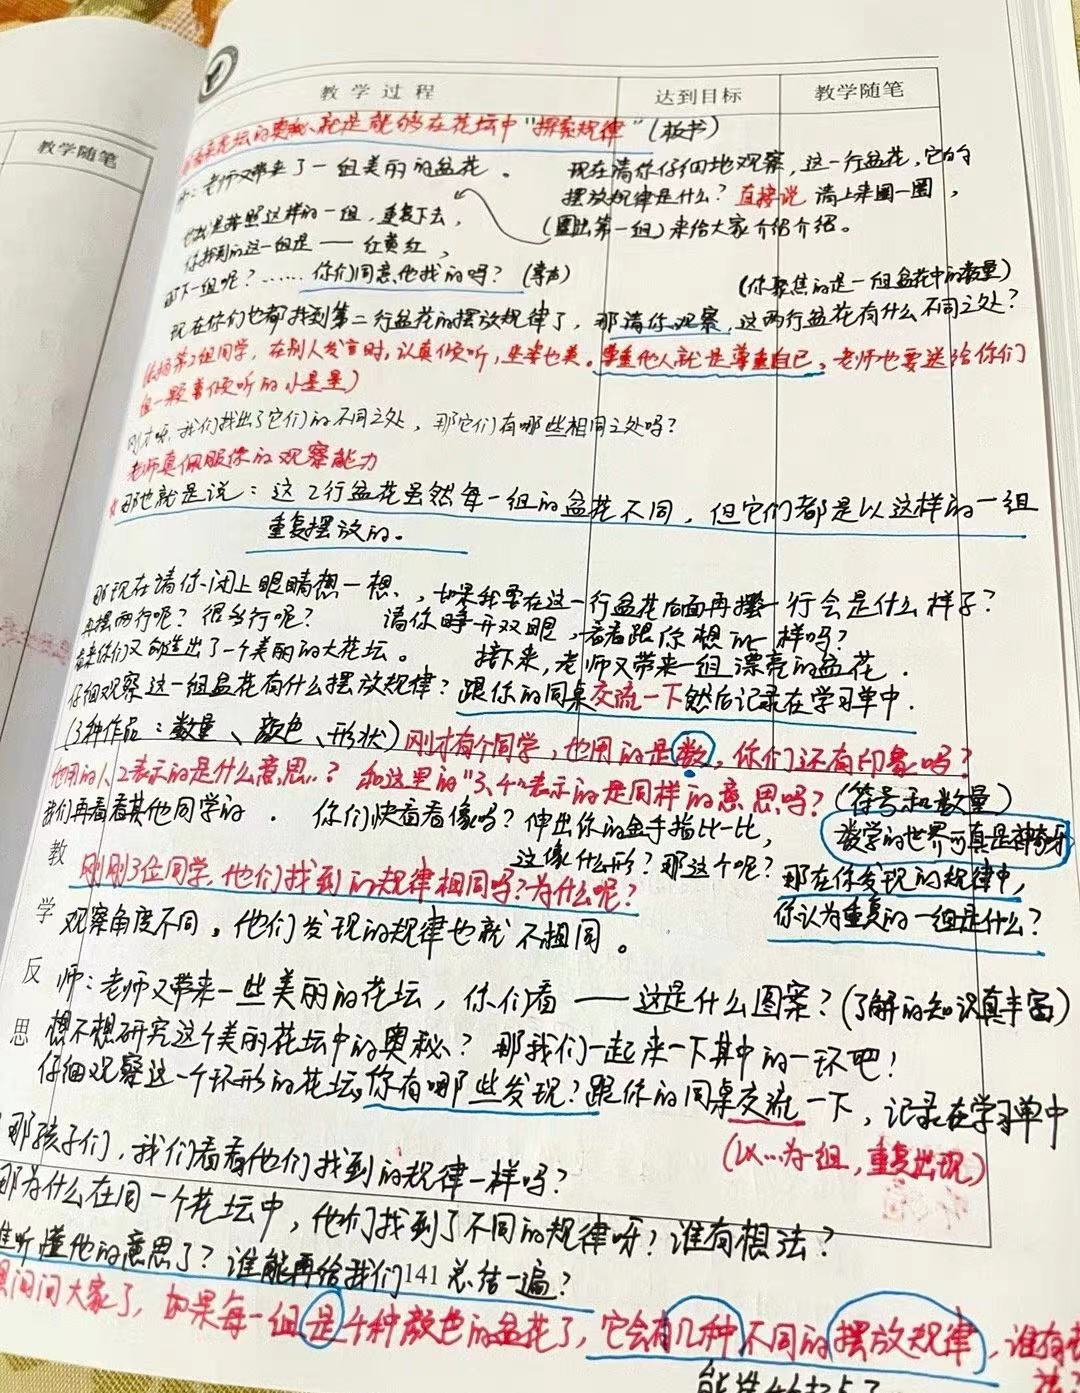 教学随笔
教学过程
达到目标
教学随笔
花坛的奥秘、就是能够在花坛中"探索规律"(板书)
老师又带来了一组美丽的盆花。
现在请你仔细地观察,这一行盆花,它的
摆放规律是什么?直接说 请上来圈一圈,
(圈出第一组)来给大家介绍介绍。
是按照这样的一组,重复下去,
你找到的这一组是——红黄红,
下一组呢?……你们同意他找的吗?
(你聚焦的是一组盆花中的数量)
现在你们也都找到第二行盆花的摆放规律了,那请你观察,这两行盆花有什么不同之处?
第2组同学,在别人发言时,认真倾听,坐姿也美。尊重他人就是尊重自己,老师也要送给你们
一颗善倾听的小星星)
刚才呀,我们找出了它们的不同之处,那它们有哪些相同之处吗?
老师真佩服你的观察能力
那也就是说:这2行盆花虽然每一组的盆花不同,但它们都是以这样的一组
重复摆放的。
那现在请你闭上眼睛想一想,如果我要在这一行盆花后面再摆一行会是什么样子?
再摆两行呢?很多行呢?请你睁开双眼,看看跟你想的一样吗?
看来你们又创造出了一个美丽的大花坛。接下来,老师又带来一组漂亮的盆花.
仔细观察这一组盆花有什么摆放规律?跟你的同桌交流一下然后记录在学习单中.
(3种作品:数量、颜色、形状)刚才有个同学,也用的是数,你们还有印象吗?
他用的1、2表示的是什么意思?和这里的"3、4"表示的是同样的意思吗?(符号和数量)
我们再看看其他同学的.你们快看看像吗?伸出你的金手指比一比,
数学的世界可真是神奇呀
这像什么形?那这个呢?
那在你发现的规律中,
你认为重复的一组是什么?
教学反思
刚刚3位同学,他们找到的规律相同吗?为什么呢?
观察角度不同,他们发现的规律也就不相同。
师:老师又带来一些美丽的花坛,你们看——这是什么图案?(了解的知识真丰富)
想不想研究这个美丽花坛中的奥秘?那我们一起来一下其中的一环吧!
仔细观察这一个环形的花坛,你有哪些发现?跟你的同桌交流一下,记录在学习单中
(以…为一组,重复出现)
那孩子们,我们看看他们找到的规律一样吗?
那为什么在同一个花坛中,他们找到了不同的规律呀?谁有想法?
谁听懂他的意思了?谁能再给我们总结一遍?
141
问问大家了,如果每一组是4种颜色的盆花了,它会有几种不同的摆放规律,谁有